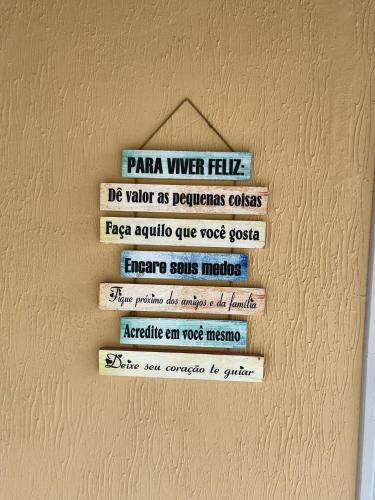 PARA VIVER FELIZ:
Dê valor as pequenas coisas
Faça aquilo que você gosta
Encare seus medos
Fique próximo dos amigos e da família
Acredite em você mesmo
Deixe seu coração te guiar